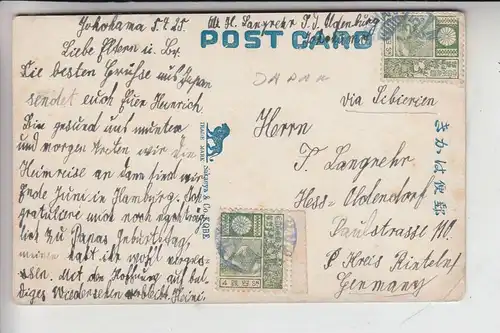 Yokohama 5.4.25.
Abs. H. Langrehr S. S. Oldenburg
POST CARD
Liebe Eltern u. Br.
Die besten Grüsse aus Japan
sendet euch Euer Heinrich.
Bin gesund und munter
und morgen treten wir die
Heimreise an dann sind wir
Ende Juni in Hamburg.
gratuliere auch noch
zu Papas Geburtstag,
habt ihr wohl
Mit der Hoffnung auf bal-
diges Wiedersehen verbleibt Heini.
via Sibirien
Herrn
F. Langrehr
Hess-Oldendorf
Paulstrasse 110
Kreis Rinteln
Germany
きかは便郵
TRADE MARK Sakaeya & Co. KOBE.